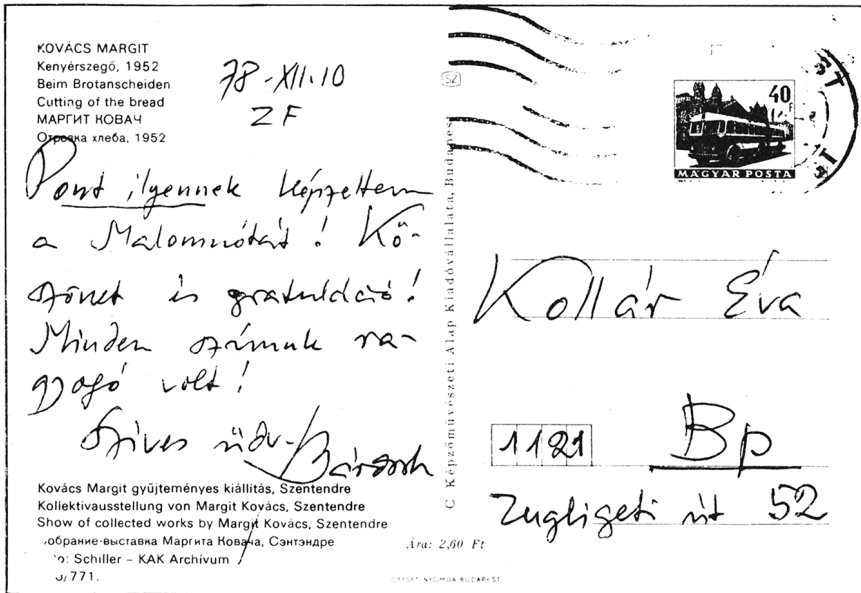 KOVÁCS MARGIT
Kenyérszegő, 1952
Beim Brotanscheiden
Cutting of the bread
МАРГИТ КОВАЧ
Отрезка хлеба, 1952
78-XII.10
ZF
Pont ilyennek képzeltem
a Malomnótát! Kö-
szönet és gratuláció!
Minden számuk ra-
gyogó volt!
Szíves üdv.
Kovács Margit gyűjteményes kiállítás, Szentendre
Kollektivausstellung von Margit Kovács, Szentendre
Show of collected works by Margit Kovács, Szentendre
обрание-выставка Маргита Ковача, Сэнтэндре
o: Schiller – KAK Archivum
0/771.
Ára: 2,60 Ft
OFFSET NYOMDA BUDAPEST
SZ
C Képzőművészeti Alap Kiadóvállalata, Budapest
40
MAGYAR POSTA
ST
Kollár Éva
1121
Bp
Zugligeti út 52